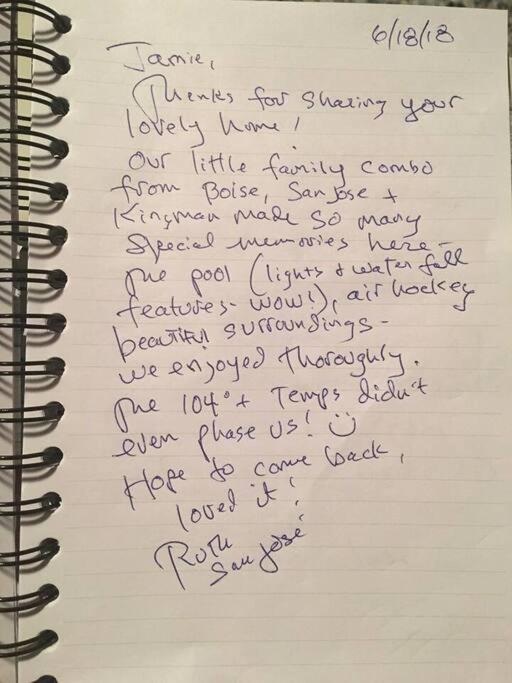 6/18/18
Jamie,
Thanks for sharing your
lovely home!
Our little family combo
from Boise, San Jose +
Kingman made so many
special memories here -
the pool (lights & waterfall
features - wow!), air hockey
beautiful surroundings -
we enjoyed thoroughly.
The 104°+ temps didn't
even phase us! ☺
Hope to come back,
loved it!
Ruth
San José